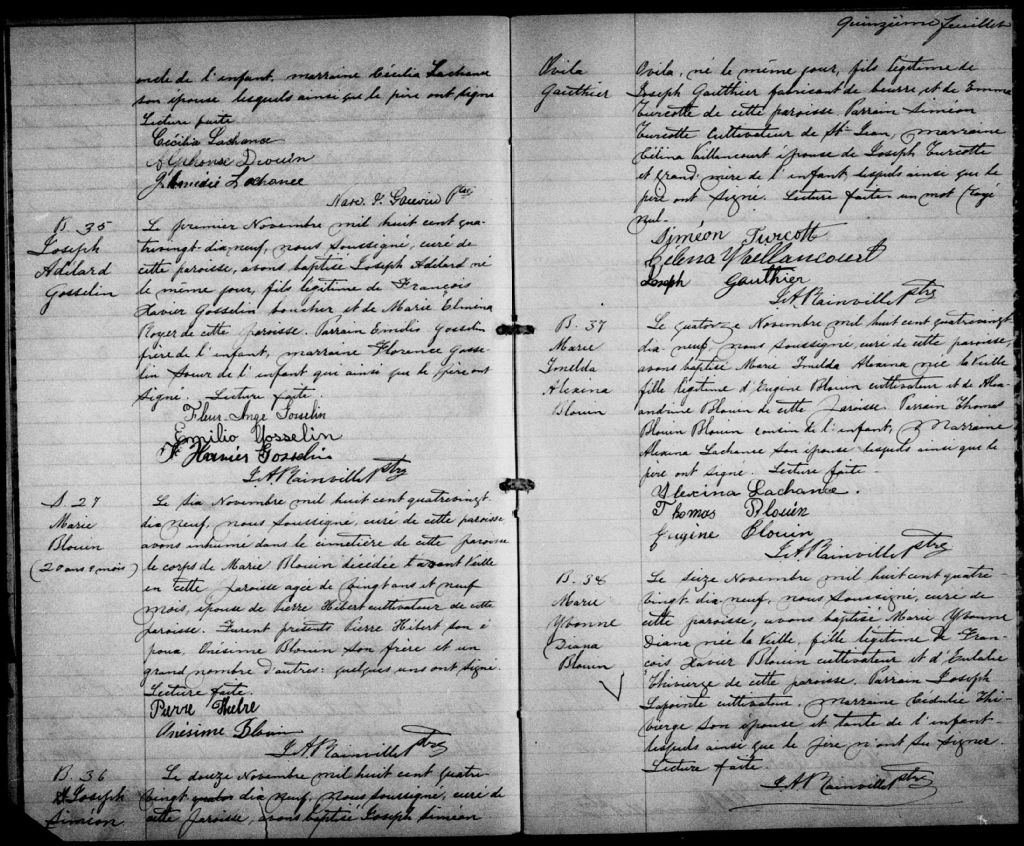 oncle de l'enfant, marraine Cécilia Lachance
son épouse lesquels ainsi que le père ont signé
Lecture faite
Cécilia Lachance
Alphonse Drouin
J. Amédée Lachance
Narc. P. Ptre
B. 35
Joseph
Adélard
Gosselin
Le premier Novembre mil huit cent qua-
trevingt-dix neuf, nous soussigné, curé de
cette paroisse, avons baptisé Joseph Adélard né
le même jour, fils légitime de François
Xavier Gosselin boucher et de Marie Elmina
Royer de cette paroisse. Parrain Emilio Gosselin
frère de l'enfant, marraine Florence Gosse-
lin Soeur de l'enfant qui ainsi que le père ont
signé. Lecture faite.
Fleur-Ange Gosselin
Emilio Gosselin
F. Xavier Gosselin
J. A. Rainville Ptre
S. 27
Marie
Blouin
(20 ans 9 mois)
Le six Novembre mil huit cent quatrevingt
dix neuf, nous soussigné, curé de cette paroisse
avons inhumé dans le cimetière de cette paroisse
le corps de Marie Blouin décédée l'avant veille
en cette paroisse agée de vingt ans et neuf
mois, épouse de Pierre Hébert cultivateur de cette
paroisse. Furent présents Pierre Hébert son é
poux, Onésime Blouin son frère et un
grand nombre d'autres: quelques uns ont signé
Lecture faite.
Pierre
Onésime Blouin
J. A. Rainville Ptre
B. 36
Joseph
Siméon
Le douze Novembre mil huit cent quatre-
vingt dix neuf, nous soussigné, curé de
cette paroisse, avons baptisé Joseph Siméon
Quinzième feuillet
Ovila
Gauthier
Ovila, né le même jour, fils légitime de
Joseph Gauthier fabricant de beurre et de Emma
Turcotte de cette paroisse Parrain Siméon
Turcotte cultivateur de St Jean, marraine
Célina Vaillancourt épouse de Joseph Turcotte
et grand-mère de l'enfant lesquels ainsi que le
père ont signé. Lecture faite un mot rayé
nul.
Siméon Turcott
Célena Vaillancourt
Joseph Gauthier
J. A. Rainville Ptre
B. 37
Marie
Imelda
Alexina
Blouin
Le quatorze Novembre mil huit cent quatrevingt
dix neuf, nous soussigné, curé de cette paroisse,
avons baptisé Marie Imelda Alexina née la veille
fille légitime d'Eugène Blouin cultivateur et de Alex-
andrine Blouin de cette paroisse. Parrain Thomas
Blouin Blouin cousin de l'enfant, Marraine
Alexina Lachance son épouse lesquels ainsi que le
père ont signé. Lecture faite
Alexina Lachance.
Thomas Blouin
Eugène Blouin
J. A. Rainville Ptre
B. 38
Marie
Yvonne
Diana
Blouin
Le seize Novembre mil huit cent quatre-
vingt-dix neuf, nous soussigné, curé de
cette paroisse, avons baptisé Marie Yvonne
Diana née la veille, fille légitime de Fran-
çois Xavier Blouin cultivateur et d'Eulalie
Thivierge de cette paroisse. Parrain Joseph
Lapointe cultivateur, marraine Cédulie Thi-
vierge son épouse et tante de l'enfant
lesquels ainsi que le père n'ont su signer.
Lecture faite.
J. A. Rainville Ptre